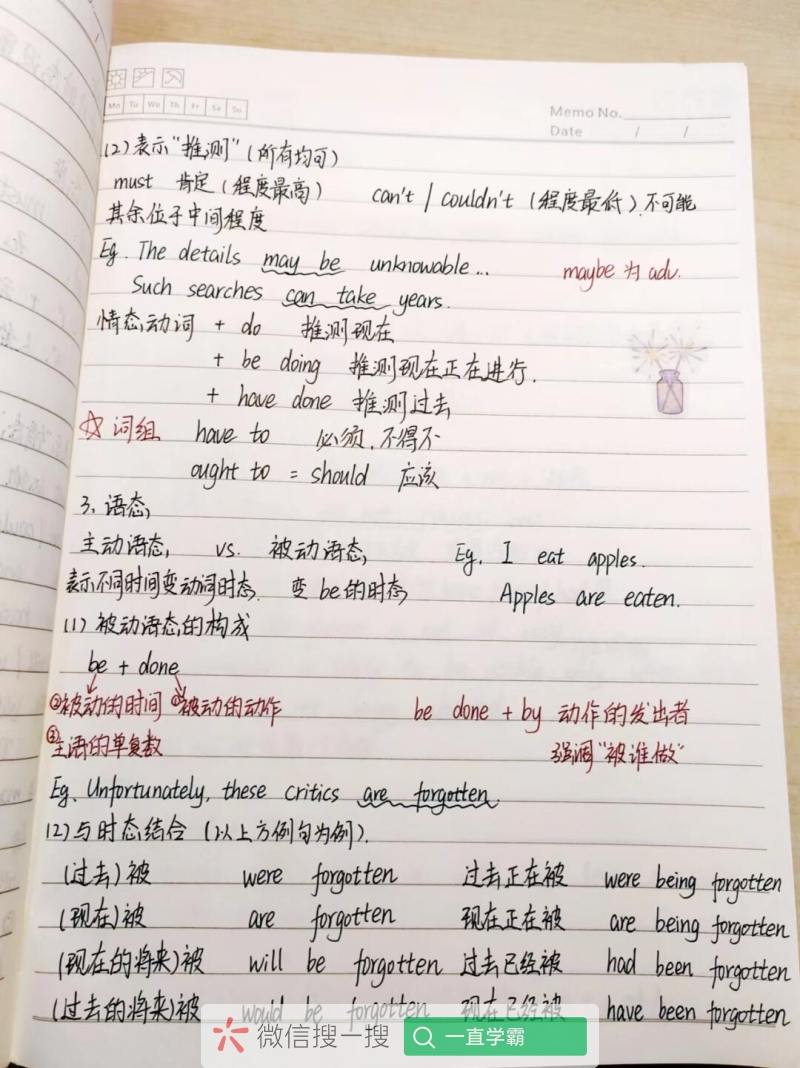 Mo Tu We Th Fr Sa Su
Memo No.
Date / /
(2) 表示“推测”(所有均可)
must 肯定(程度最高) can't / couldn't (程度最低).不可能
其余位于中间程度
Eg. The details may be unknowable... maybe 为 adv.
Such searches can take years.
情态动词 + do 推测现在
+ be doing 推测现在正在进行.
+ have done 推测过去
☆词组 have to 必须.不得不
ought to = should 应该
3. 语态
主动语态 vs. 被动语态 Eg. I eat apples.
表示不同时间变动词时态. 变be的时态 Apples are eaten.
(1) 被动语态的构成
be + done
②被动的时间 ①被动的动作 be done + by 动作的发出者
③主语的单复数 强调“被谁做”
Eg. Unfortunately, these critics are forgotten.
(2) 与时态结合 (以上方例句为例).
(过去)被 were forgotten 过去正在被 were being forgotten
(现在)被 are forgotten 现在正在被 are being forgotten
(现在的将来)被 will be forgotten 过去已经被 had been forgotten
(过去的将来)被 would be forgotten 现在已经被 have been forgotten
微信搜一搜 一直学霸